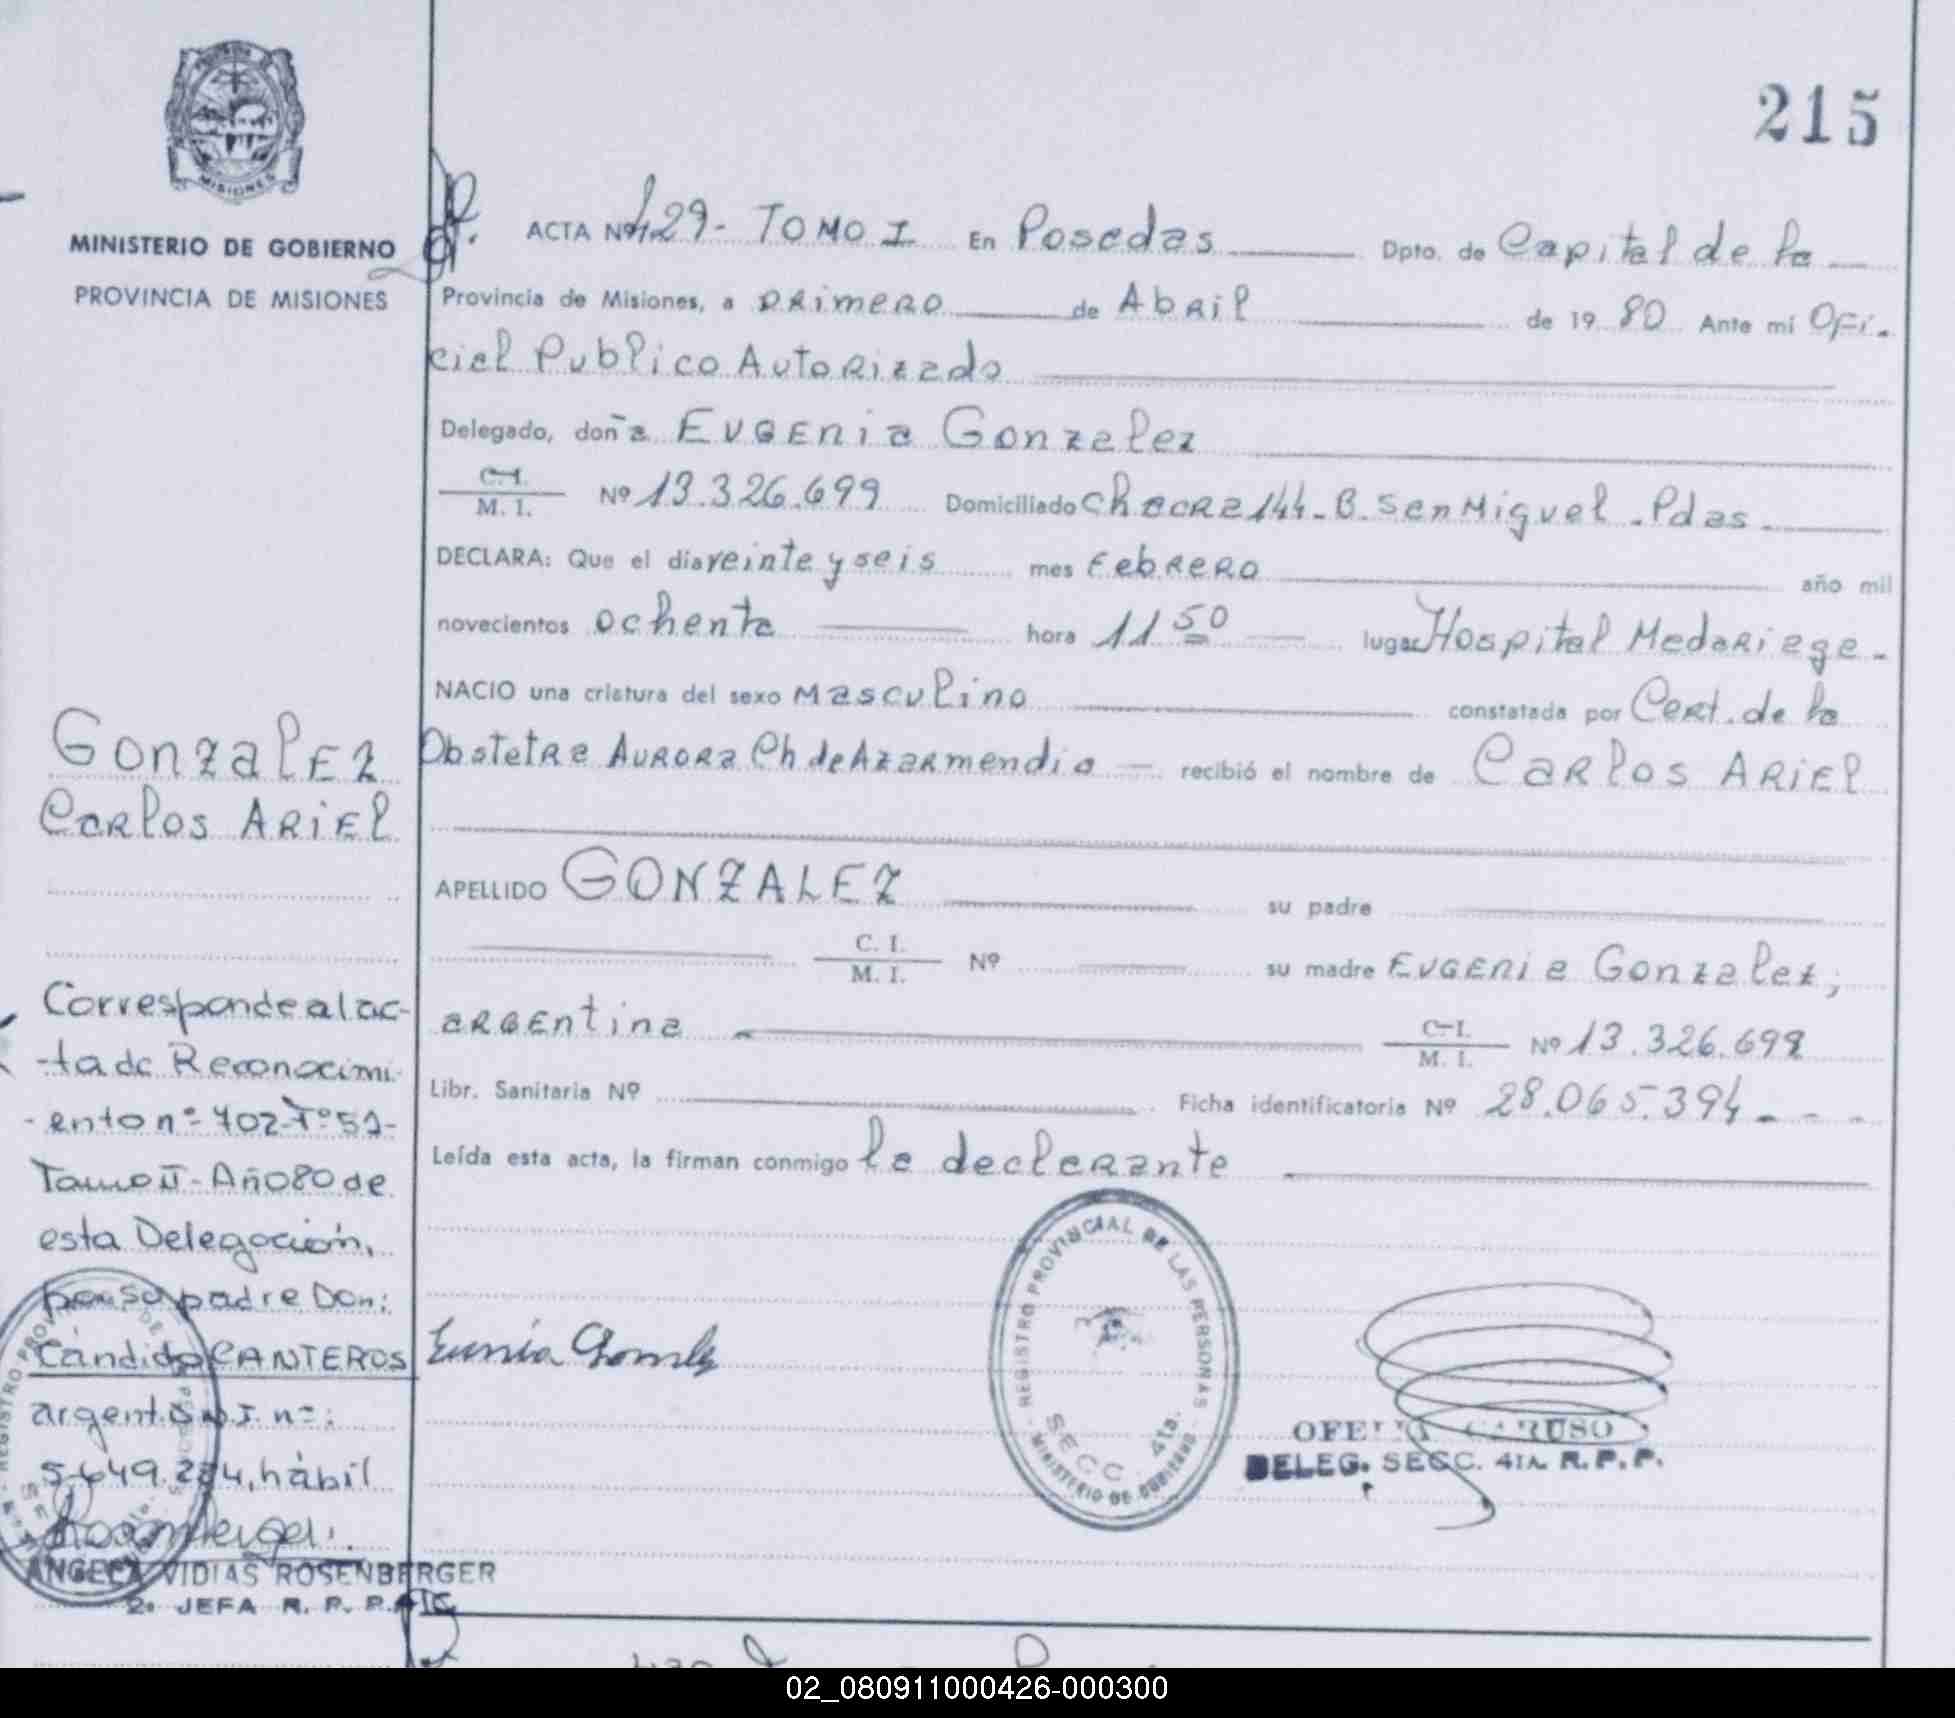 215
MISIONES
MINISTERIO DE GOBIERNO
PROVINCIA DE MISIONES
ACTA Nº 429- TOMO I En Posadas Dpto. de Capital de la
Provincia de Misiones, a primero de Abril de 19 80 Ante mí Ofi-
cial Publico Autorizado
Delegado, doña Eugenia Gonzalez
C.I.
M. I. Nº 13.326.699 Domiciliado Chacra 144- B. San Miguel - Pdas -
DECLARA: Que el día veinte y seis mes Febrero año mil
novecientos ochenta hora 11 50 lugar Hospital Madariaga -
NACIO una criatura del sexo masculino constatada por Cert. de la
Obstetra Aurora Ch de Azarmendia recibió el nombre de Carlos Ariel
APELLIDO GONZALEZ su padre
C. I.
M. I. Nº su madre Eugenia Gonzalez,
argentina C.I.
M. I. Nº 13.326.699
Libr. Sanitaria Nº Ficha identificatoria Nº 28.065.394 - - -
Leída esta acta, la firman conmigo la declarante
Gonzalez
Carlos Ariel
Corresponde al ac-
-ta de Reconocimi-
-ento nº 702-Fº 52-
Tomo II - Año 80 de
esta Delegación,
por su padre Don:
Cándido CANTEROS
argent. M.I. nº:
5.649.224, hábil
ANGELA VIDIAS ROSENBERGER
2ª JEFA R. P. P.
REGISTRO PROVINCIAL DE LAS PERSONAS
SECC. 4ta.
MINISTERIO DE GOBIERNO
CARUSO
DELEG. SECC. 4TA R.P.P.
02_080911000426-000300